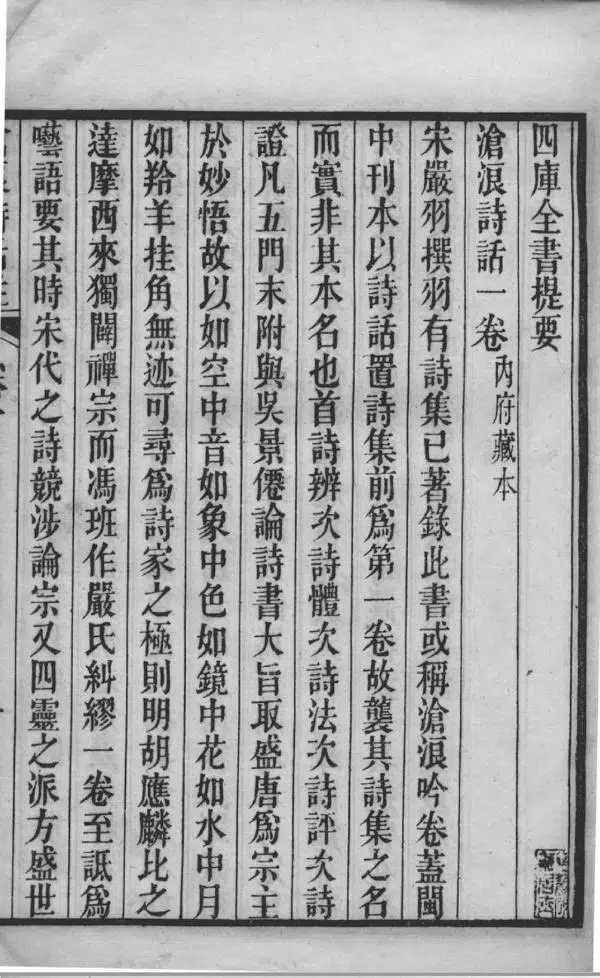 四庫全書提要
滄浪詩話一卷 內府藏本
宋嚴羽撰羽有詩集已著錄此書或稱滄浪吟卷蓋閩
中刊本以詩話置詩集前爲第一卷故襲其詩集之名
而實非其本名也首詩辨次詩體次詩法次詩評次詩
證凡五門末附與吳景僊論詩書大旨取盛唐爲宗主
於妙悟故以如空中音如象中色如鏡中花如水中月
如羚羊挂角無迹可尋爲詩家之極則明胡應麟比之
達摩西來獨闢禪宗而馮班作嚴氏糾繆一卷至詆爲
囈語要其時宋代之詩競涉論宗又四靈之派方盛世